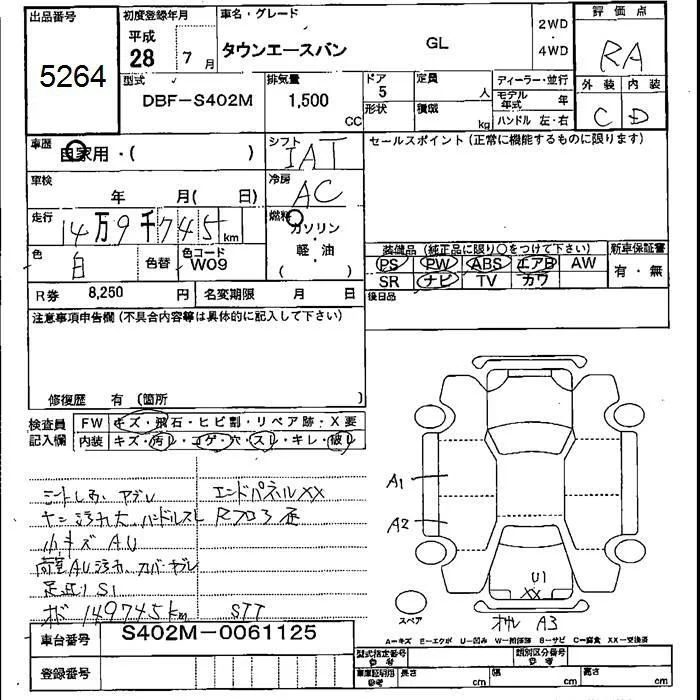 出品番号
5264
初度登録年月
平成
28 7 月
車名・グレード
タウンエースバン GL
2WD
・
4WD
評価点
RA
外装 内装
C D
型式
DBF-S402M
排気量
1,500
CC
ドア
5
形状
定員
人
積載
kg
ディーラー・並行
モデル年式 年
ハンドル 左・右
車歴
自家用・( )
シフト
IAT
セールスポイント(正常に機能するものに限ります)
車検
年 月( 日)
冷房
AC
走行
14万9千745km
燃料
ガソリン
・
軽・油
( )
色
白
色替
色コード
W09
装備品(純正品に限り○をつけて下さい)
PS PW ABS エアB AW
SR ナビ TV カワ
新車保証書
有・無
R券 8,250 円
名変期限 月 日
後日品
注意事項申告欄(不具合内容等は具体的に記入して下さい)
修復歴 有 (箇所 )
検査員
記入欄
FW キズ・飛石・ヒビ割・リペア跡・X要
内装 キズ・汚レ・コゲ・穴・スレ・キレ・破レ
エンドパネルXX
ハンドルスレ
小キズ AU
S1
149745km STT
A1
A2
U1
XX
スペア
A3
A=キズ E=エクボ U=凹み W=補修跡 S=サビ C=腐食 XX=交換済
車台番号
S402M-0061125
登録番号
型式指定番号
参考
類別区分番号
参考
車庫証明用
参考
長さ cm
幅 cm
高さ cm